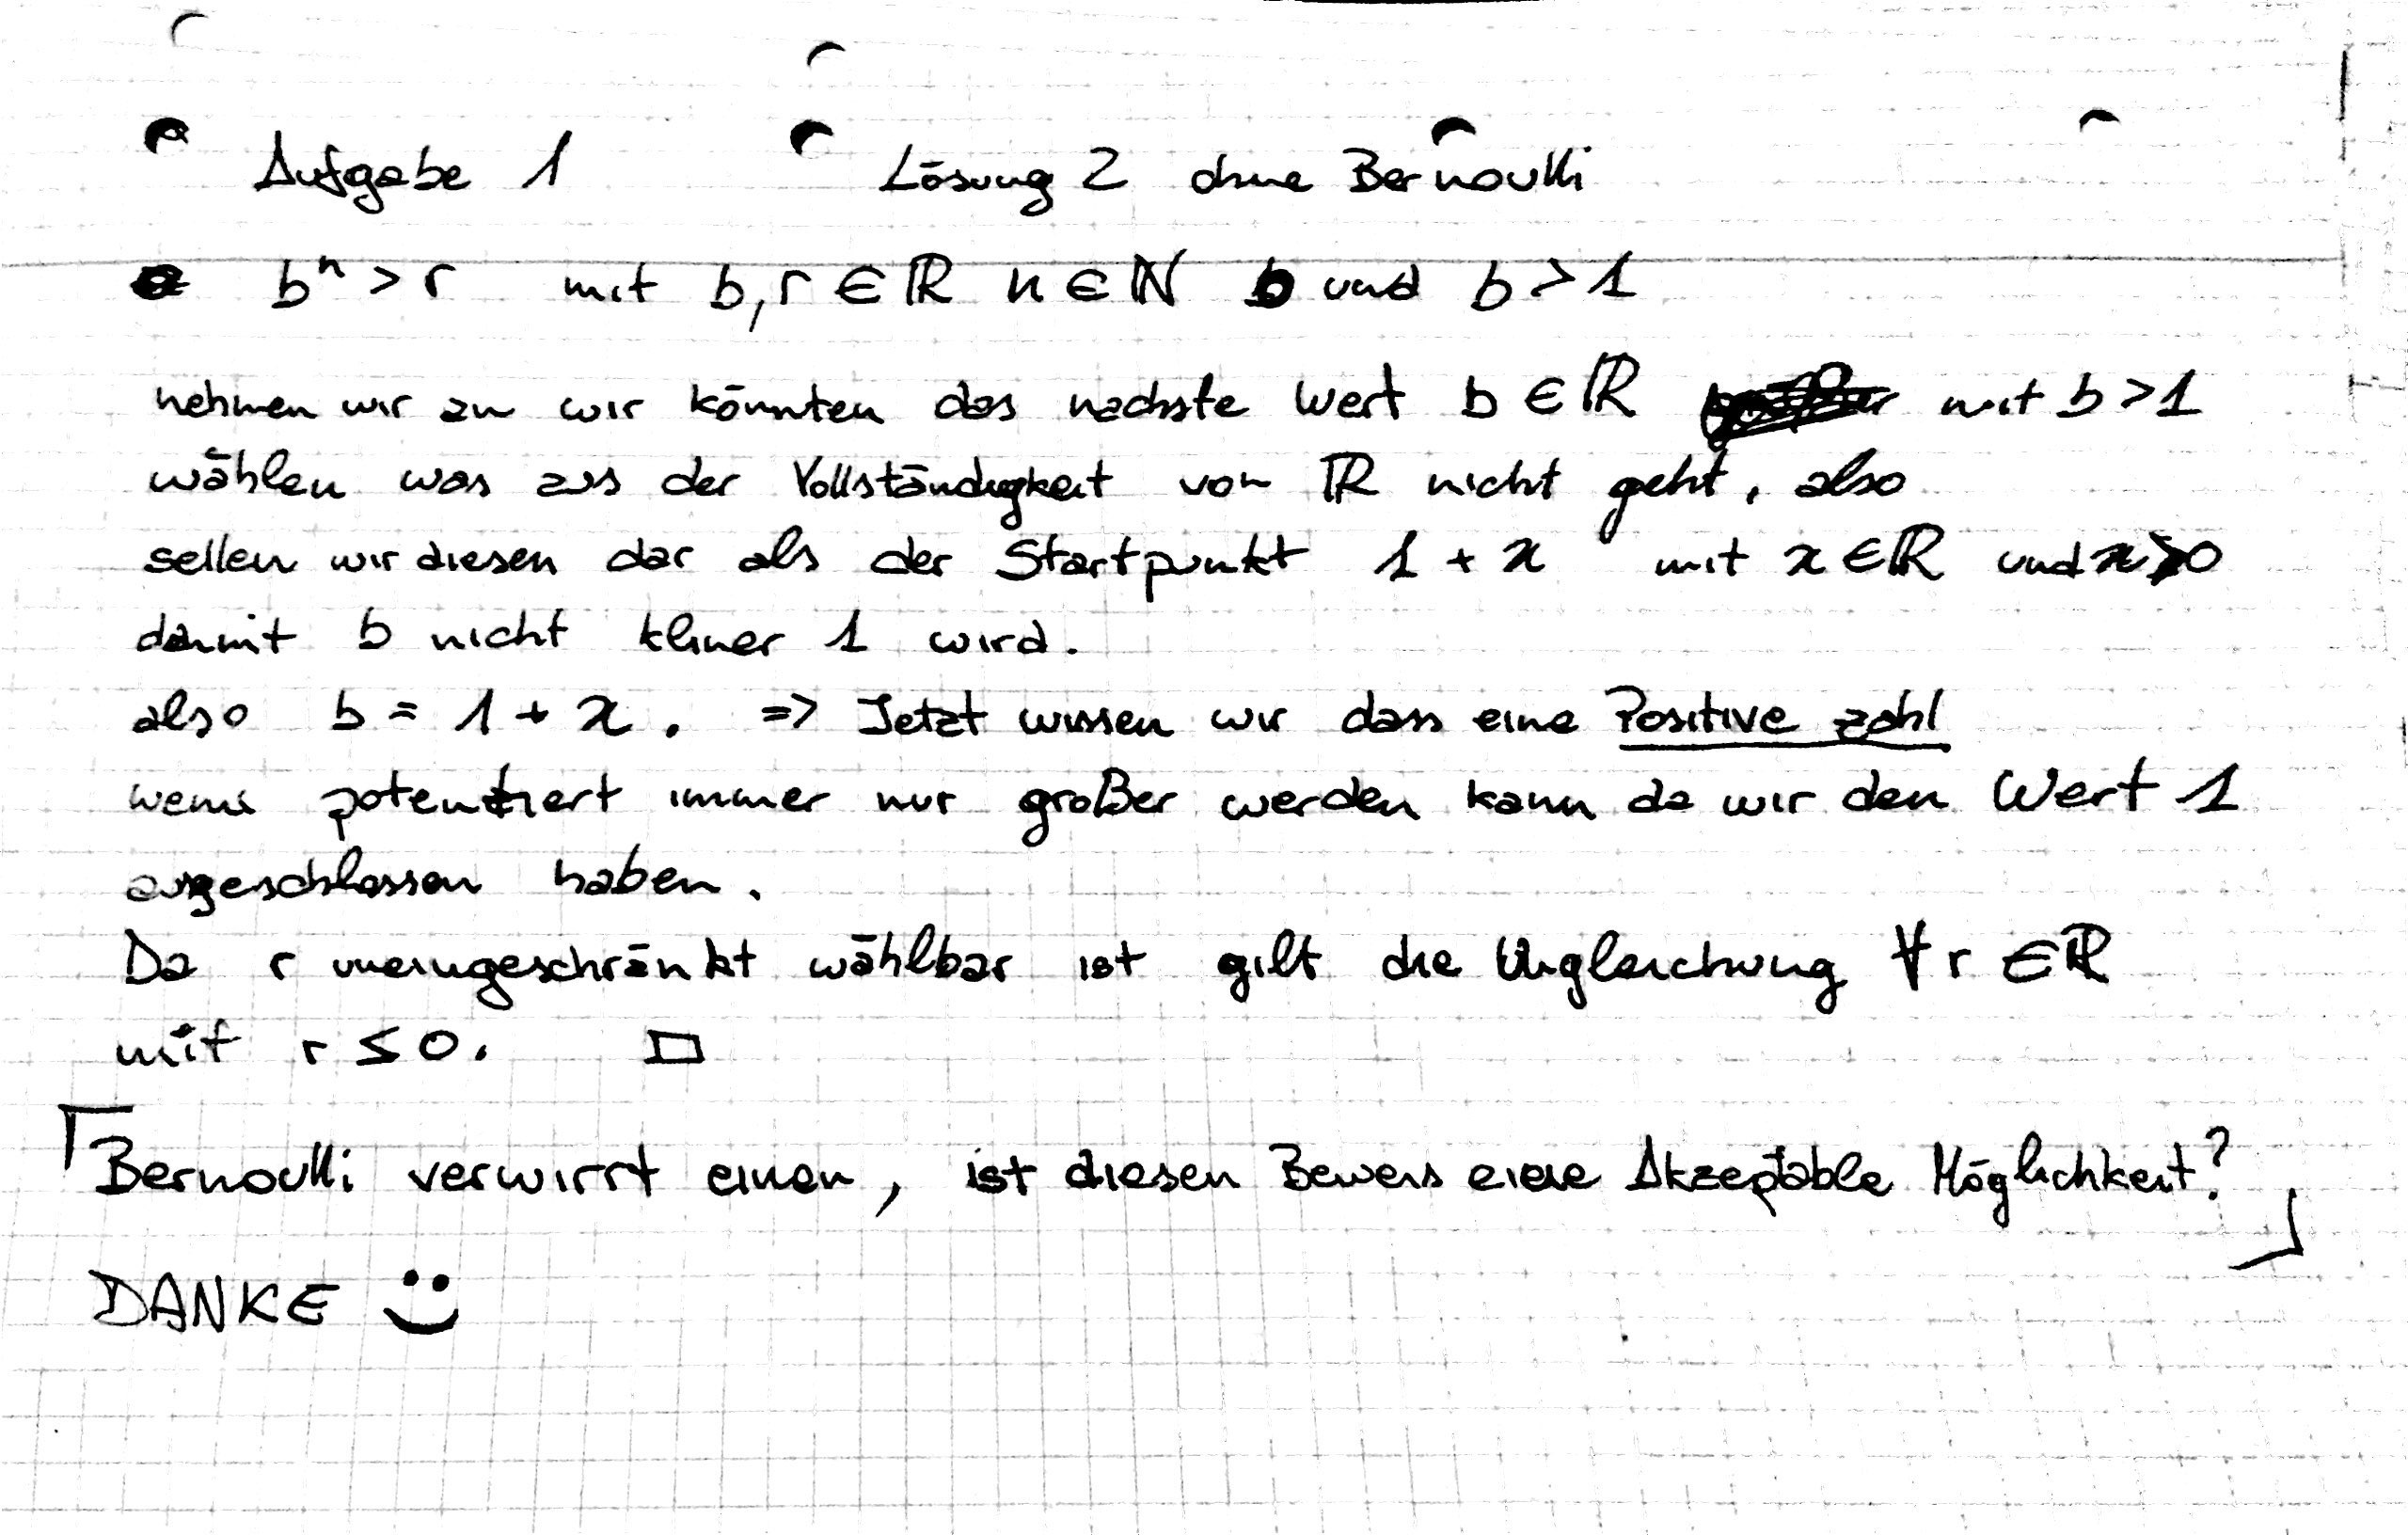 Aufgabe 1 Lösung 2 ohne Bernoulli
bⁿ > r mit b, r ∈ ℝ n ∈ ℕ und b > 1
nehmen wir an wir könnten das nachste Wert b ∈ ℝ mit b > 1
wählen was aus der Vollständigkeit von ℝ nicht geht, also
sellen wir diesen dar als der Startpunkt 1 + x mit x ∈ ℝ und x > 0
damit b nicht kliner 1 wird.
also b = 1 + x. => Jetzt wissen wir dass eine Positive zahl
wenn potenziert immer nur großer werden kann da wir den Wert 1
ausgeschlossen haben.
Da r uneingeschränkt wählbar ist gilt die Ungleichung ∀ r ∈ ℝ
mit r ≤ 0. □
Bernoulli verwirrt einen, ist diesen Beweis eine Akzeptable Möglichkeit?
DANKE :)